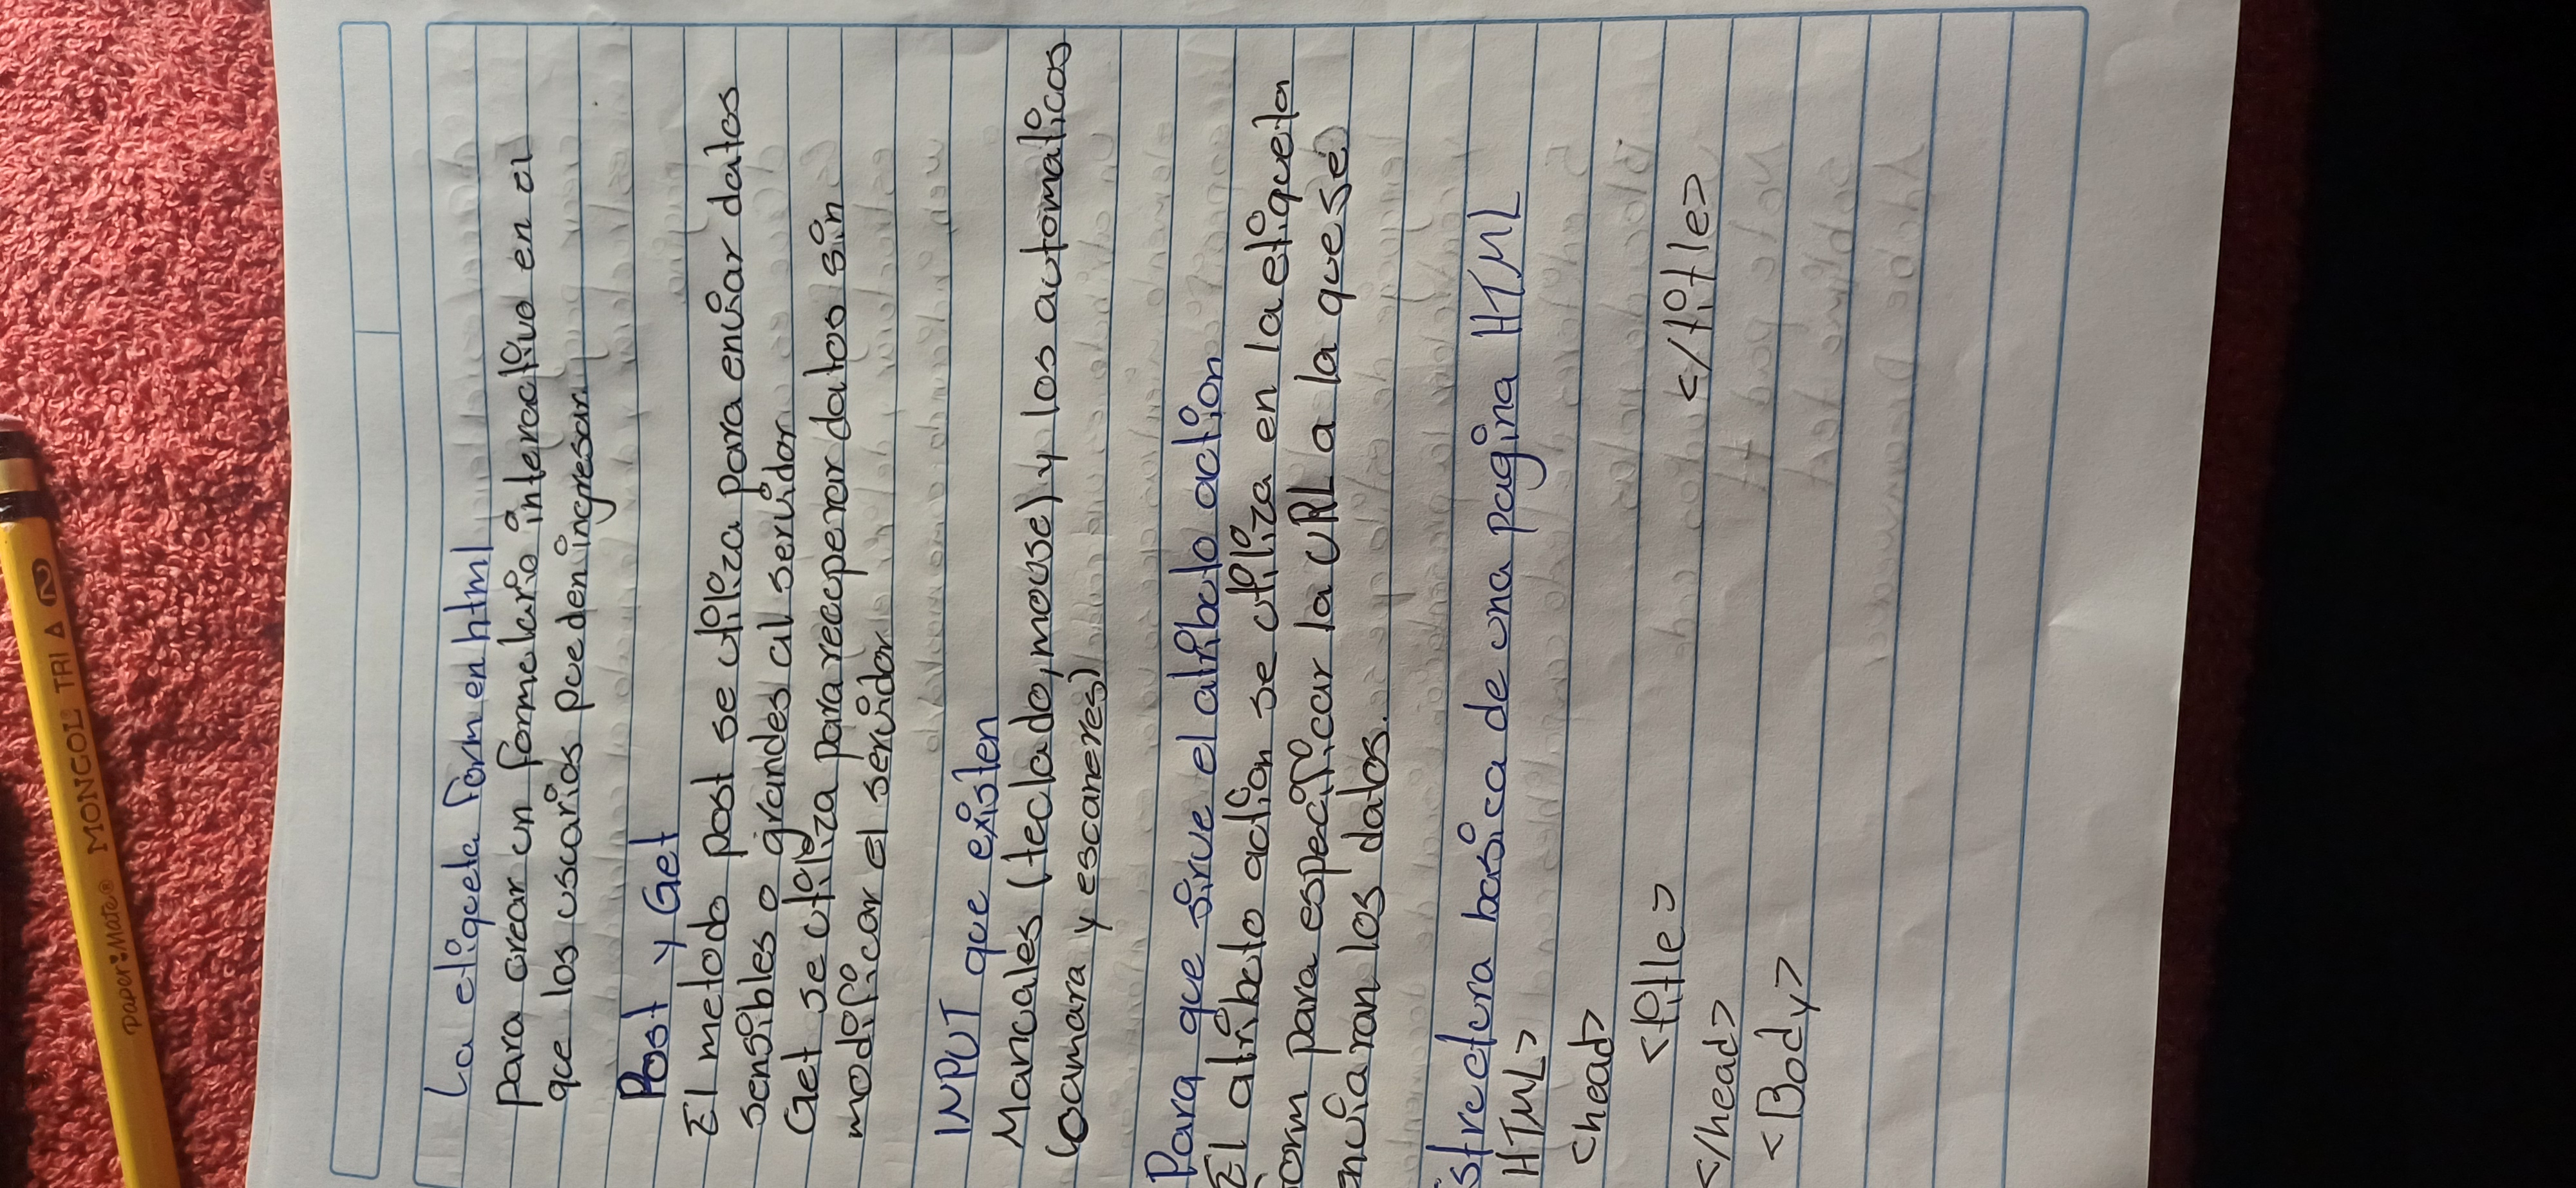 La etiqueta form en html
para crear un formulario interactivo en el
que los usuarios pueden ingresar
Post y Get
El metodo post se utiliza para enviar datos
sensibles o grandes al servidor
Get se utiliza para recuperar datos sin
modificar el servidor
INPUT que existen
Manuales (teclado, mouse) y los automaticos
(camara y escaneres)
Para que sirve el atributo action
El atributo action se utiliza en la etiqueta
orm para especificar la URL a la que se
enviaran los datos.
structura basica de una pagina HTML
HTML>
<head>
<title> </title>
</head>
<Body>
paper:mate® MONGOL TRI 2